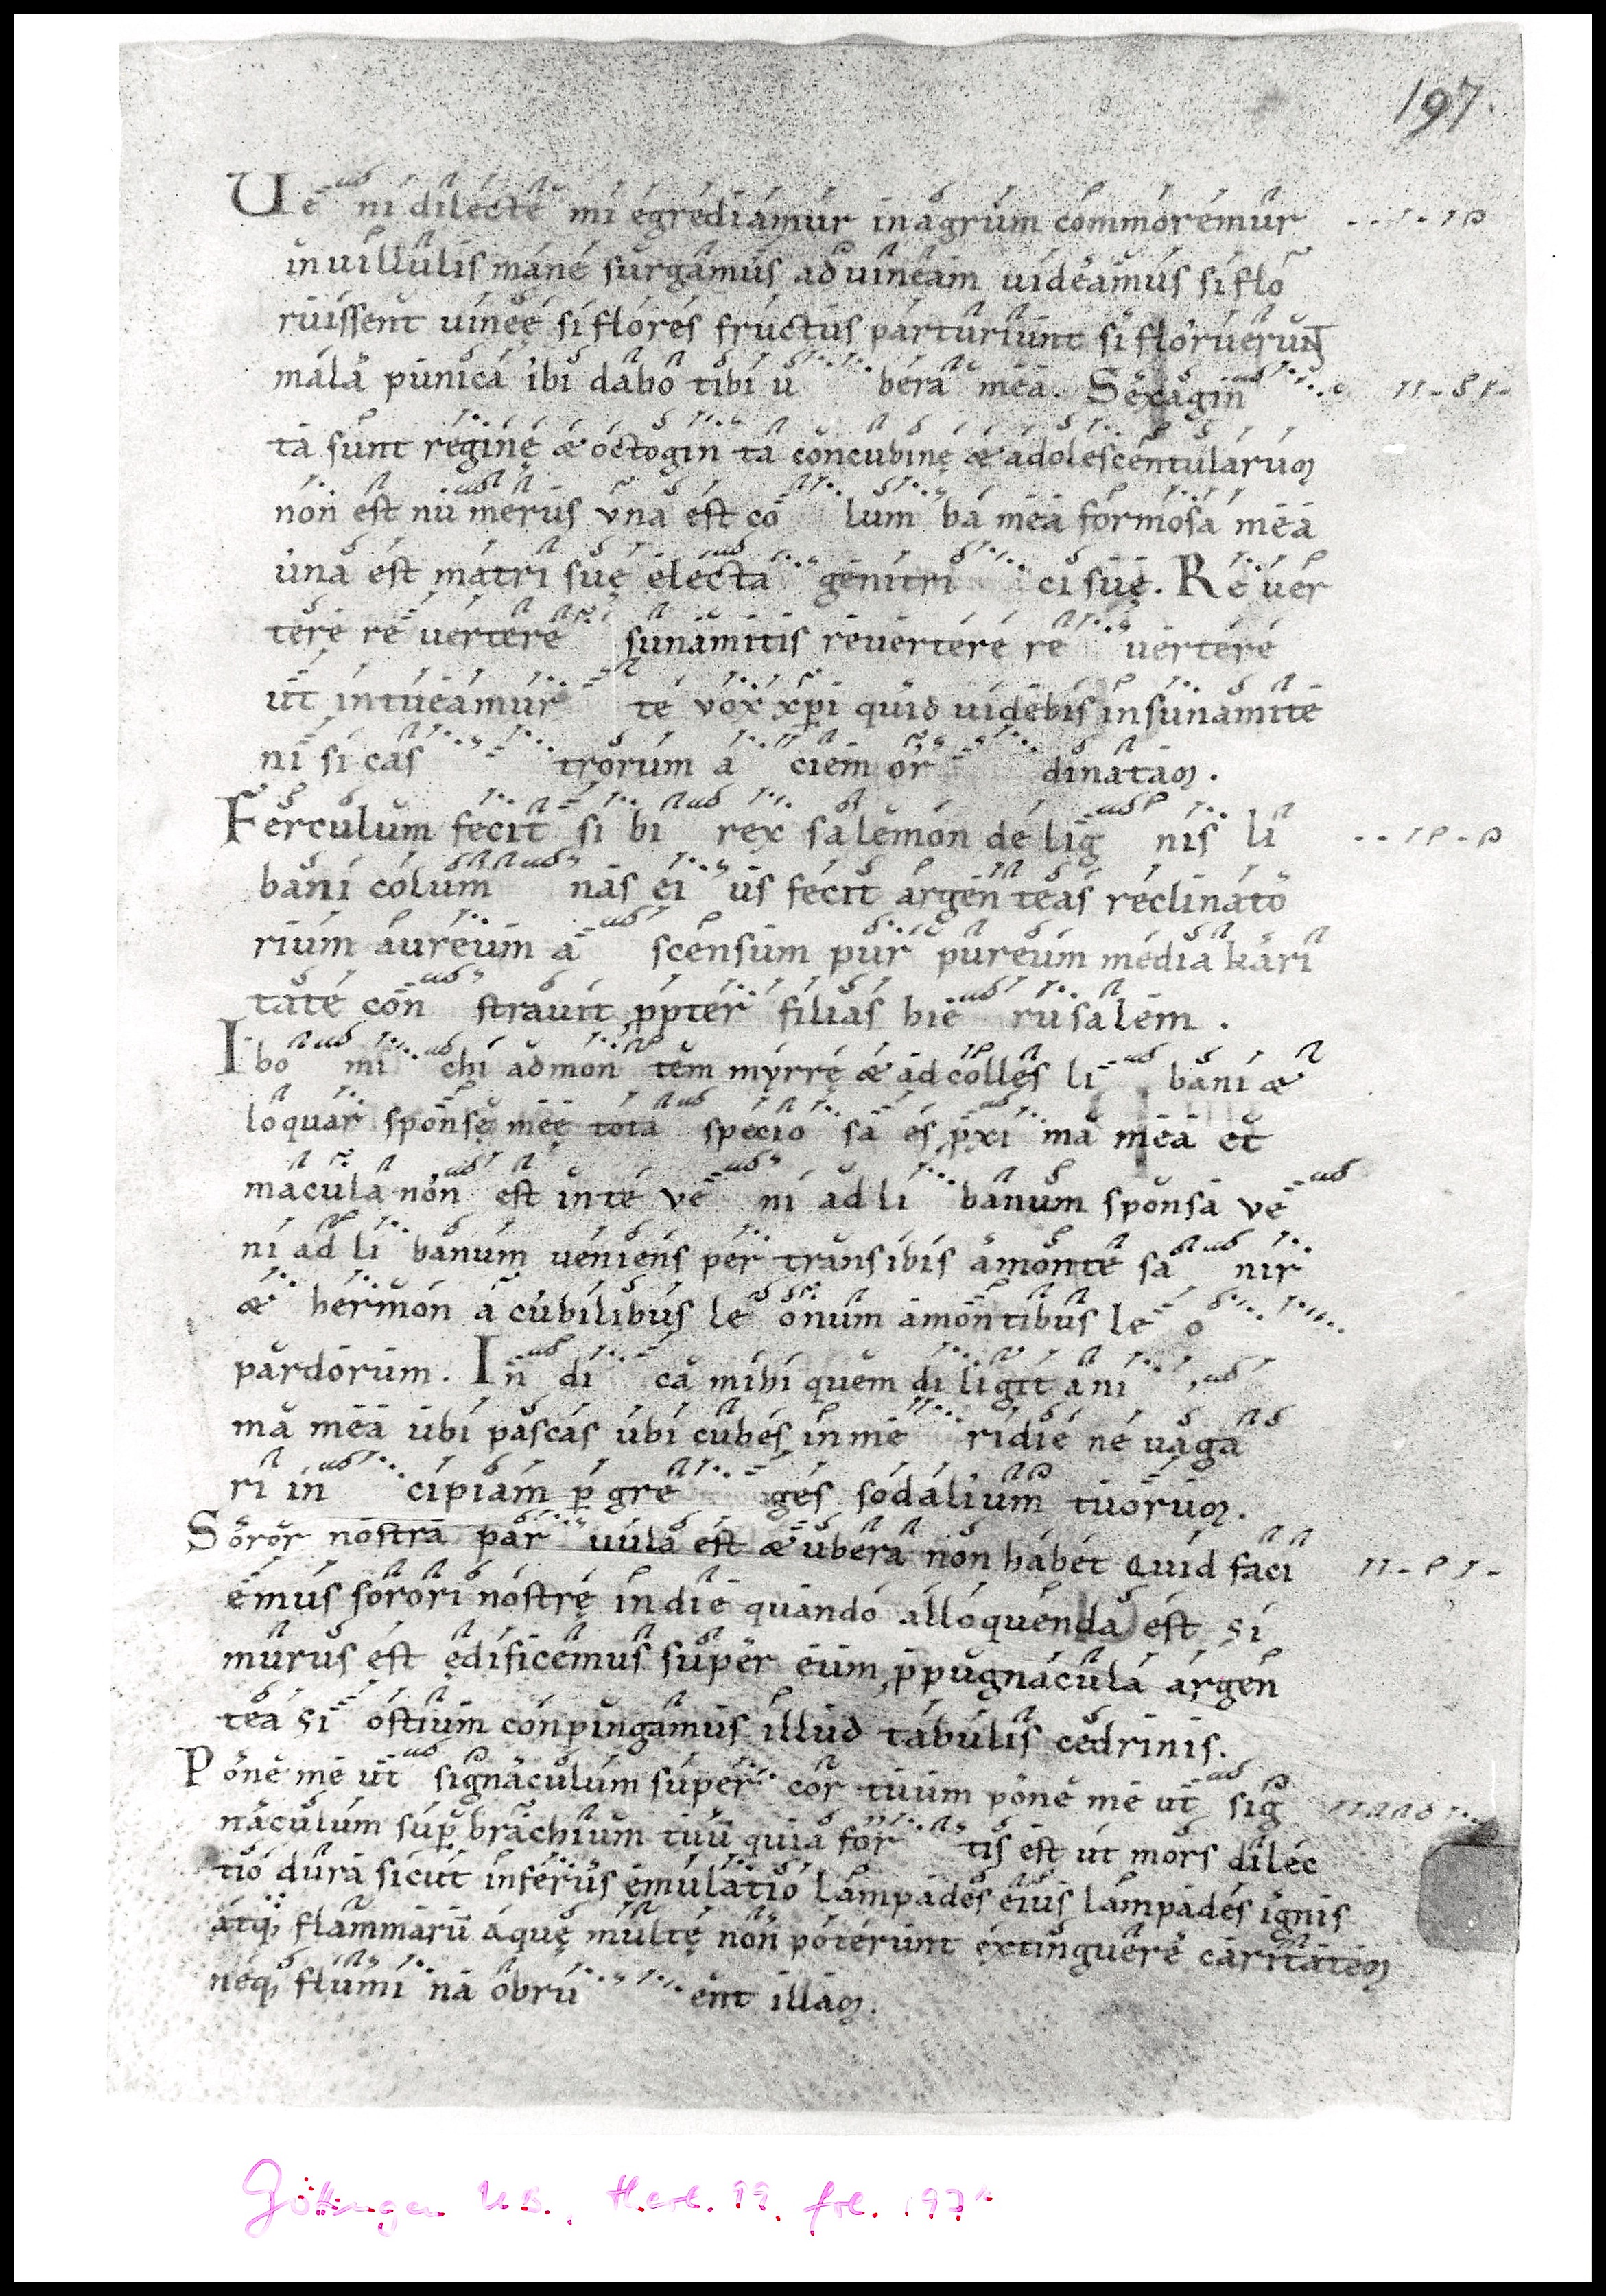 197.
Ue ni dilecte mi egrediamur in agrum commoremur
in uillulis mane surgamus ad uineam uideamus si flo
ruissent uineę si flores fructus parturiunt si floruerunt
mala punica ibi dabo tibi u bera mea. Sexagin
ta sunt reginę & octogin ta concubinę & adolescentularuꝫ
non est nu merus una est co lum ba mea formosa mea
una est matri suę electa genitri ci suę. Re uer
tere re uertere sunamitis reuertere re uertere
ut intueamur te vox xp̅i quid uidebis in sunamite
ni si cas trorum a ciem or dinataꝫ.
Ferculum fecit si bi rex salemon de lig nis li
bani colum nas ei us fecit argen teas reclinato
rium aureum a scensum pur pureum media kari
tate con strauit ꝓpter filias hie rusalem .
Ibo mi chi ad mon tem myrrę & ad colles li bani &
loquar sponsę meę tota specio sa es ꝓxi ma mea et
macula non est in te ve ni ad li banum sponsa ve
ni ad li banum ueniens per transibis a monte sa nir
& hermon a cubilibus le onum a montibus le o
pardorum. In di ca mihi quem di ligit ani
ma mea ubi pascas ubi cubes in me ridie ne uaga
ri in cipiam ꝑ gre ges sodalium tuoruꝫ.
Soror nostra par uula est & ubera non habet Quid faci
emus sorori nostrę in die quando alloquenda est si
murus est ędificemus super eum ꝓpugnacula argen
tea si ostium conpingamus illud tabulis cedrinis.
Pone me ut signaculum super cor tuum pone me ut sig
naculum suꝑ brachium tuū quia for tis est ut mors dilec
tio dura sicut inferus emulatio Lampades eius lampades ignis
atq; flammarū Aquę multę non poterunt extinguere caritateꝫ
neq; flumi na obru ent illaꝫ.
Göttingen UB., theol. 99. fol. 197r